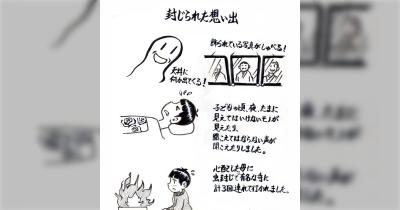 封じられた想い出
飾られている写真がしゃべる！
天井に
何か出てくる！
子どもの頃、夜、たまに
見えてはいけないモノが
見えたり、
聞こえてはならない声が
聞こえたりしました。
心配した母に
虫封じで有名な寺に
計3回連れて行かれました。